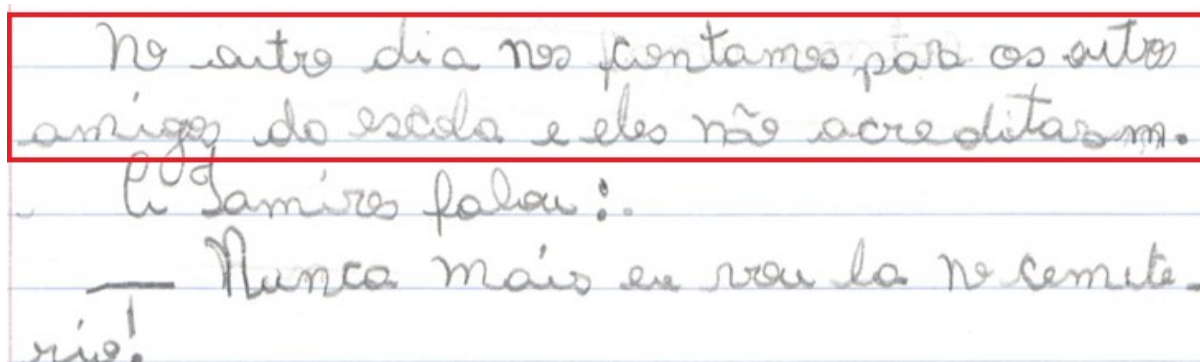 No outro dia nos contamos para os outro
amigos da escola e eles não acreditaram.
A Tamires falou:
— Nunca mais eu vou la no cemite-
rio!